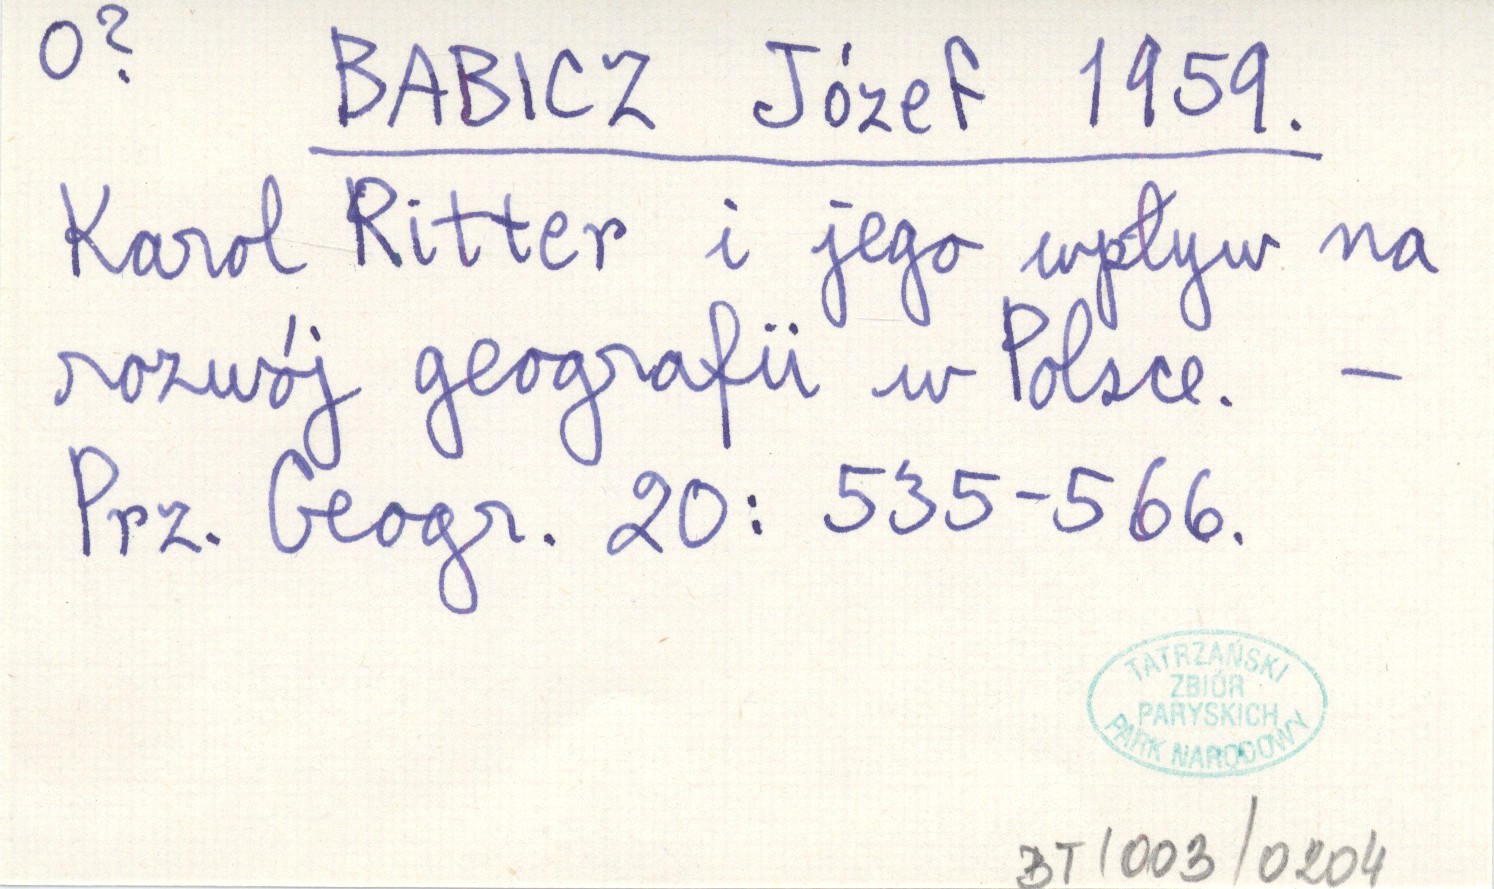 O?
BABICZ Józef 1959.
Karol Ritter i jego wpływ na
rozwój geografii w Polsce. –
Prz. Geogr. 20: 535-566.
TATRZAŃSKI
ZBIÓR
PARYSKICH
PARK NARODOWY
BT/003/0204